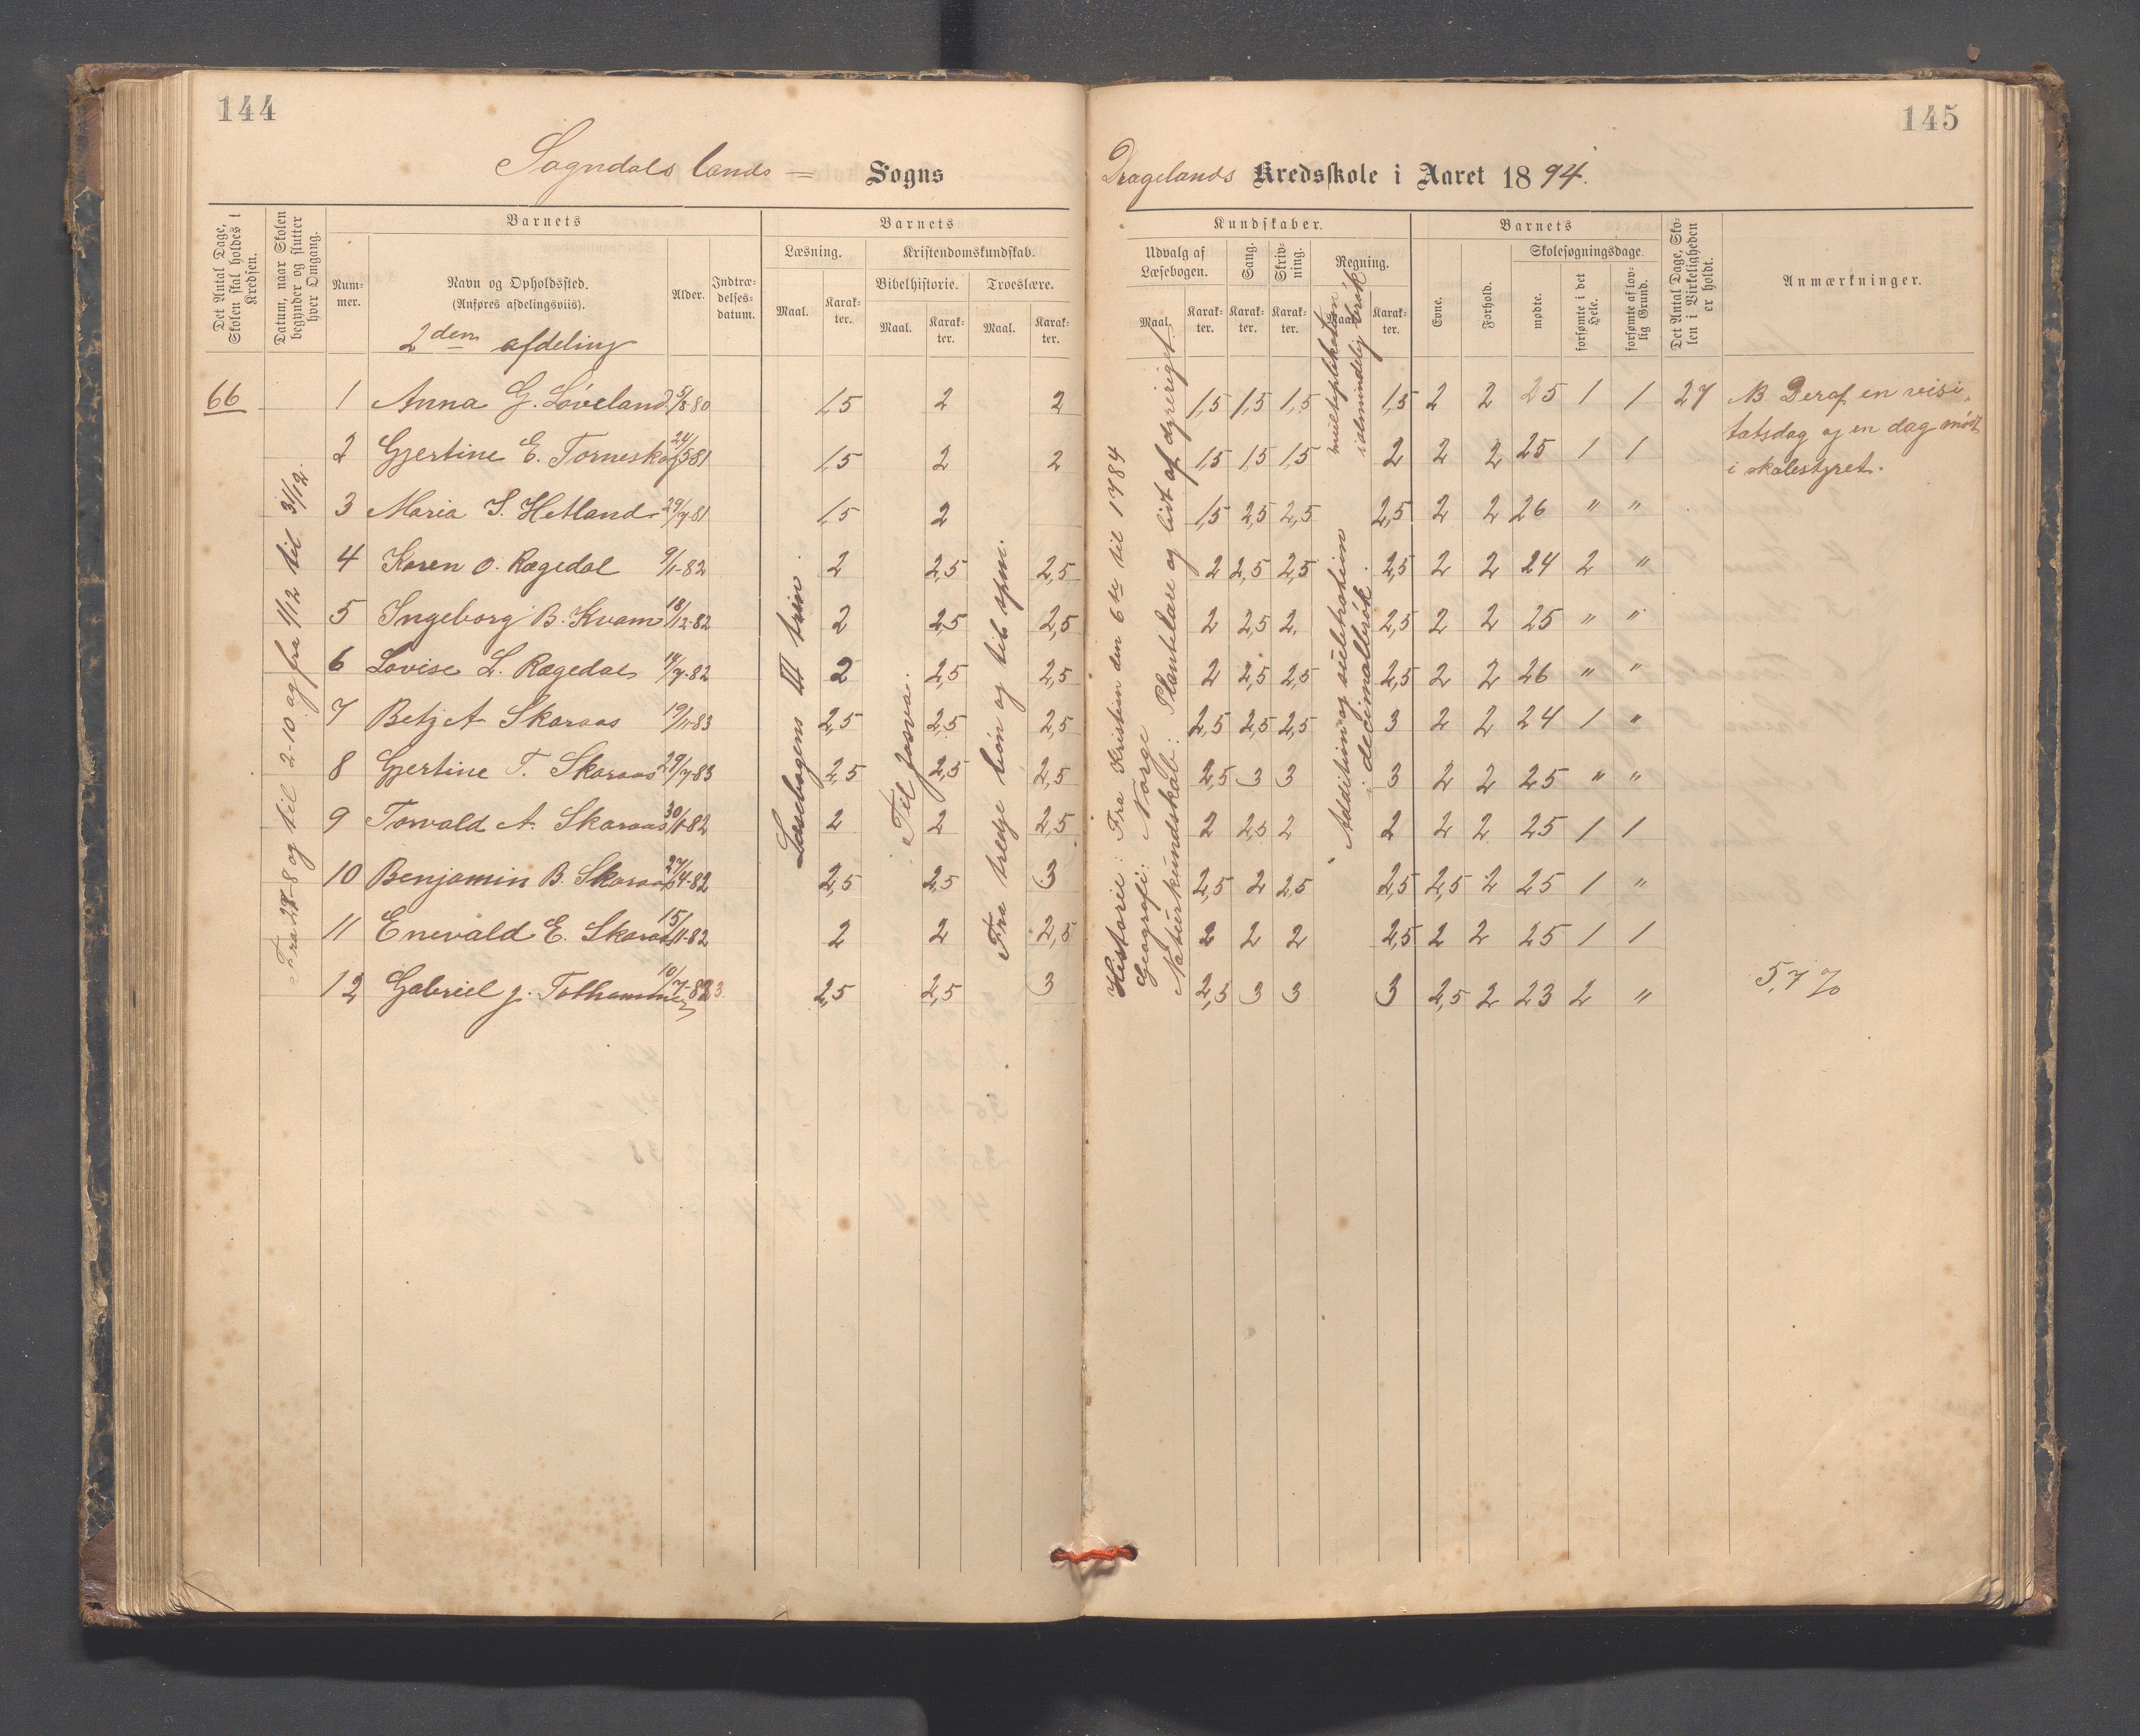 144
145
Sogndals lands = Sogns
Dragelands Kredsskole i Aaret 1894.
Det Antal Dage, Skolen skal holdes i Kredsen.
Datum, naar Skolen begynder og slutter hver Omgang.
Barnets
Nummer.
Navn og Opholdssted.
(Anføres afdelingsviis).
Alder.
Indtrædelsesdatum.
Barnets
Læsning.
Kristendomskundskab.
Bibelhistorie.
Troeslære.
Maal.
Karakter.
Maal.
Karakter.
Maal.
Karakter.
Kundskaber.
Udvalg af Læsebogen.
Sang.
Skrivning.
Regning.
Maal.
Karakter.
Karakter.
Karakter.
Maal.
Karakter.
Barnets
Evne.
Forhold.
Skolesøgningsdage.
mødte.
forsømte i det Hele.
forsømte af lovlig Grund.
Det Antal Dage, Skolen i Virkeligheden er holdt.
Anmærkninger.
2den afdeling
66
Fra 28-8 og til 2-10 og fra 1/12 til 31/12.
Læsebogens III trin
Til Josva.
Fra tredje bøn og til apm.
Historie: Fra Kristian den 6te til 1784
Geografi: Norge
Naturkundskab: Plantelære og lidt af dyreriget.
Addition og subtraktion i decimalbrøk.
multiplikation i almindelig brøk
1 Anna G. Løveland 5/8-80 1,5 2 2 1,5 1,5 1,5 1,5 2 2 25 1 1 27 NB Deraf en visi-
tatsdag og en dag møde
i skolestyret.
2 Gjertine E. Torneskog 24/5 81 1,5 2 2 1,5 1,5 1,5 2 2 2 25 1 1
3 Maria S. Hetland 29/7-81 1,5 2 1,5 2,5 2,5 2,5 2 2 26 " "
4 Karen O. Rægedal 9/11-82 2 2,5 2,5 2 2,5 2,5 2,5 2 2 24 2 "
5 Ingeborg B. Kvam 18/12-82 2 2,5 2,5 2 2,5 2. 2,5 2 2 25 " "
6 Lovise L. Rægedal 14/7-82 2 2,5 2,5 2 2,5 2,5 2,5 2 2 26 " "
7 Betzy A Skaraas 19/11-83 2,5 2,5 2,5 2,5 2,5 2,5 3 2 2 24 1 "
8 Gjertine T. Skaraas 29/7-83 2,5 2,5 2,5 2,5 3 3 3 2 2 25 " "
9 Torvald A. Skaraas 30/1-82 2 2 2,5 2 2,5 2 2 2 2 25 1 1
10 Benjamin B. Skaraas 27/4-82 2,5 2,5 3 2,5 2 2,5 2,5 2,5 2 25 1 "
11 Enevald E. Skaraas 15/11-82 2 2 2,5 2 2 2 2,5 2 2 25 1 1
12 Gabriel J. 10/7-83 2,5 2,5 3 2,5 3 3 3 2,5 2 23 2 "
5,7 %